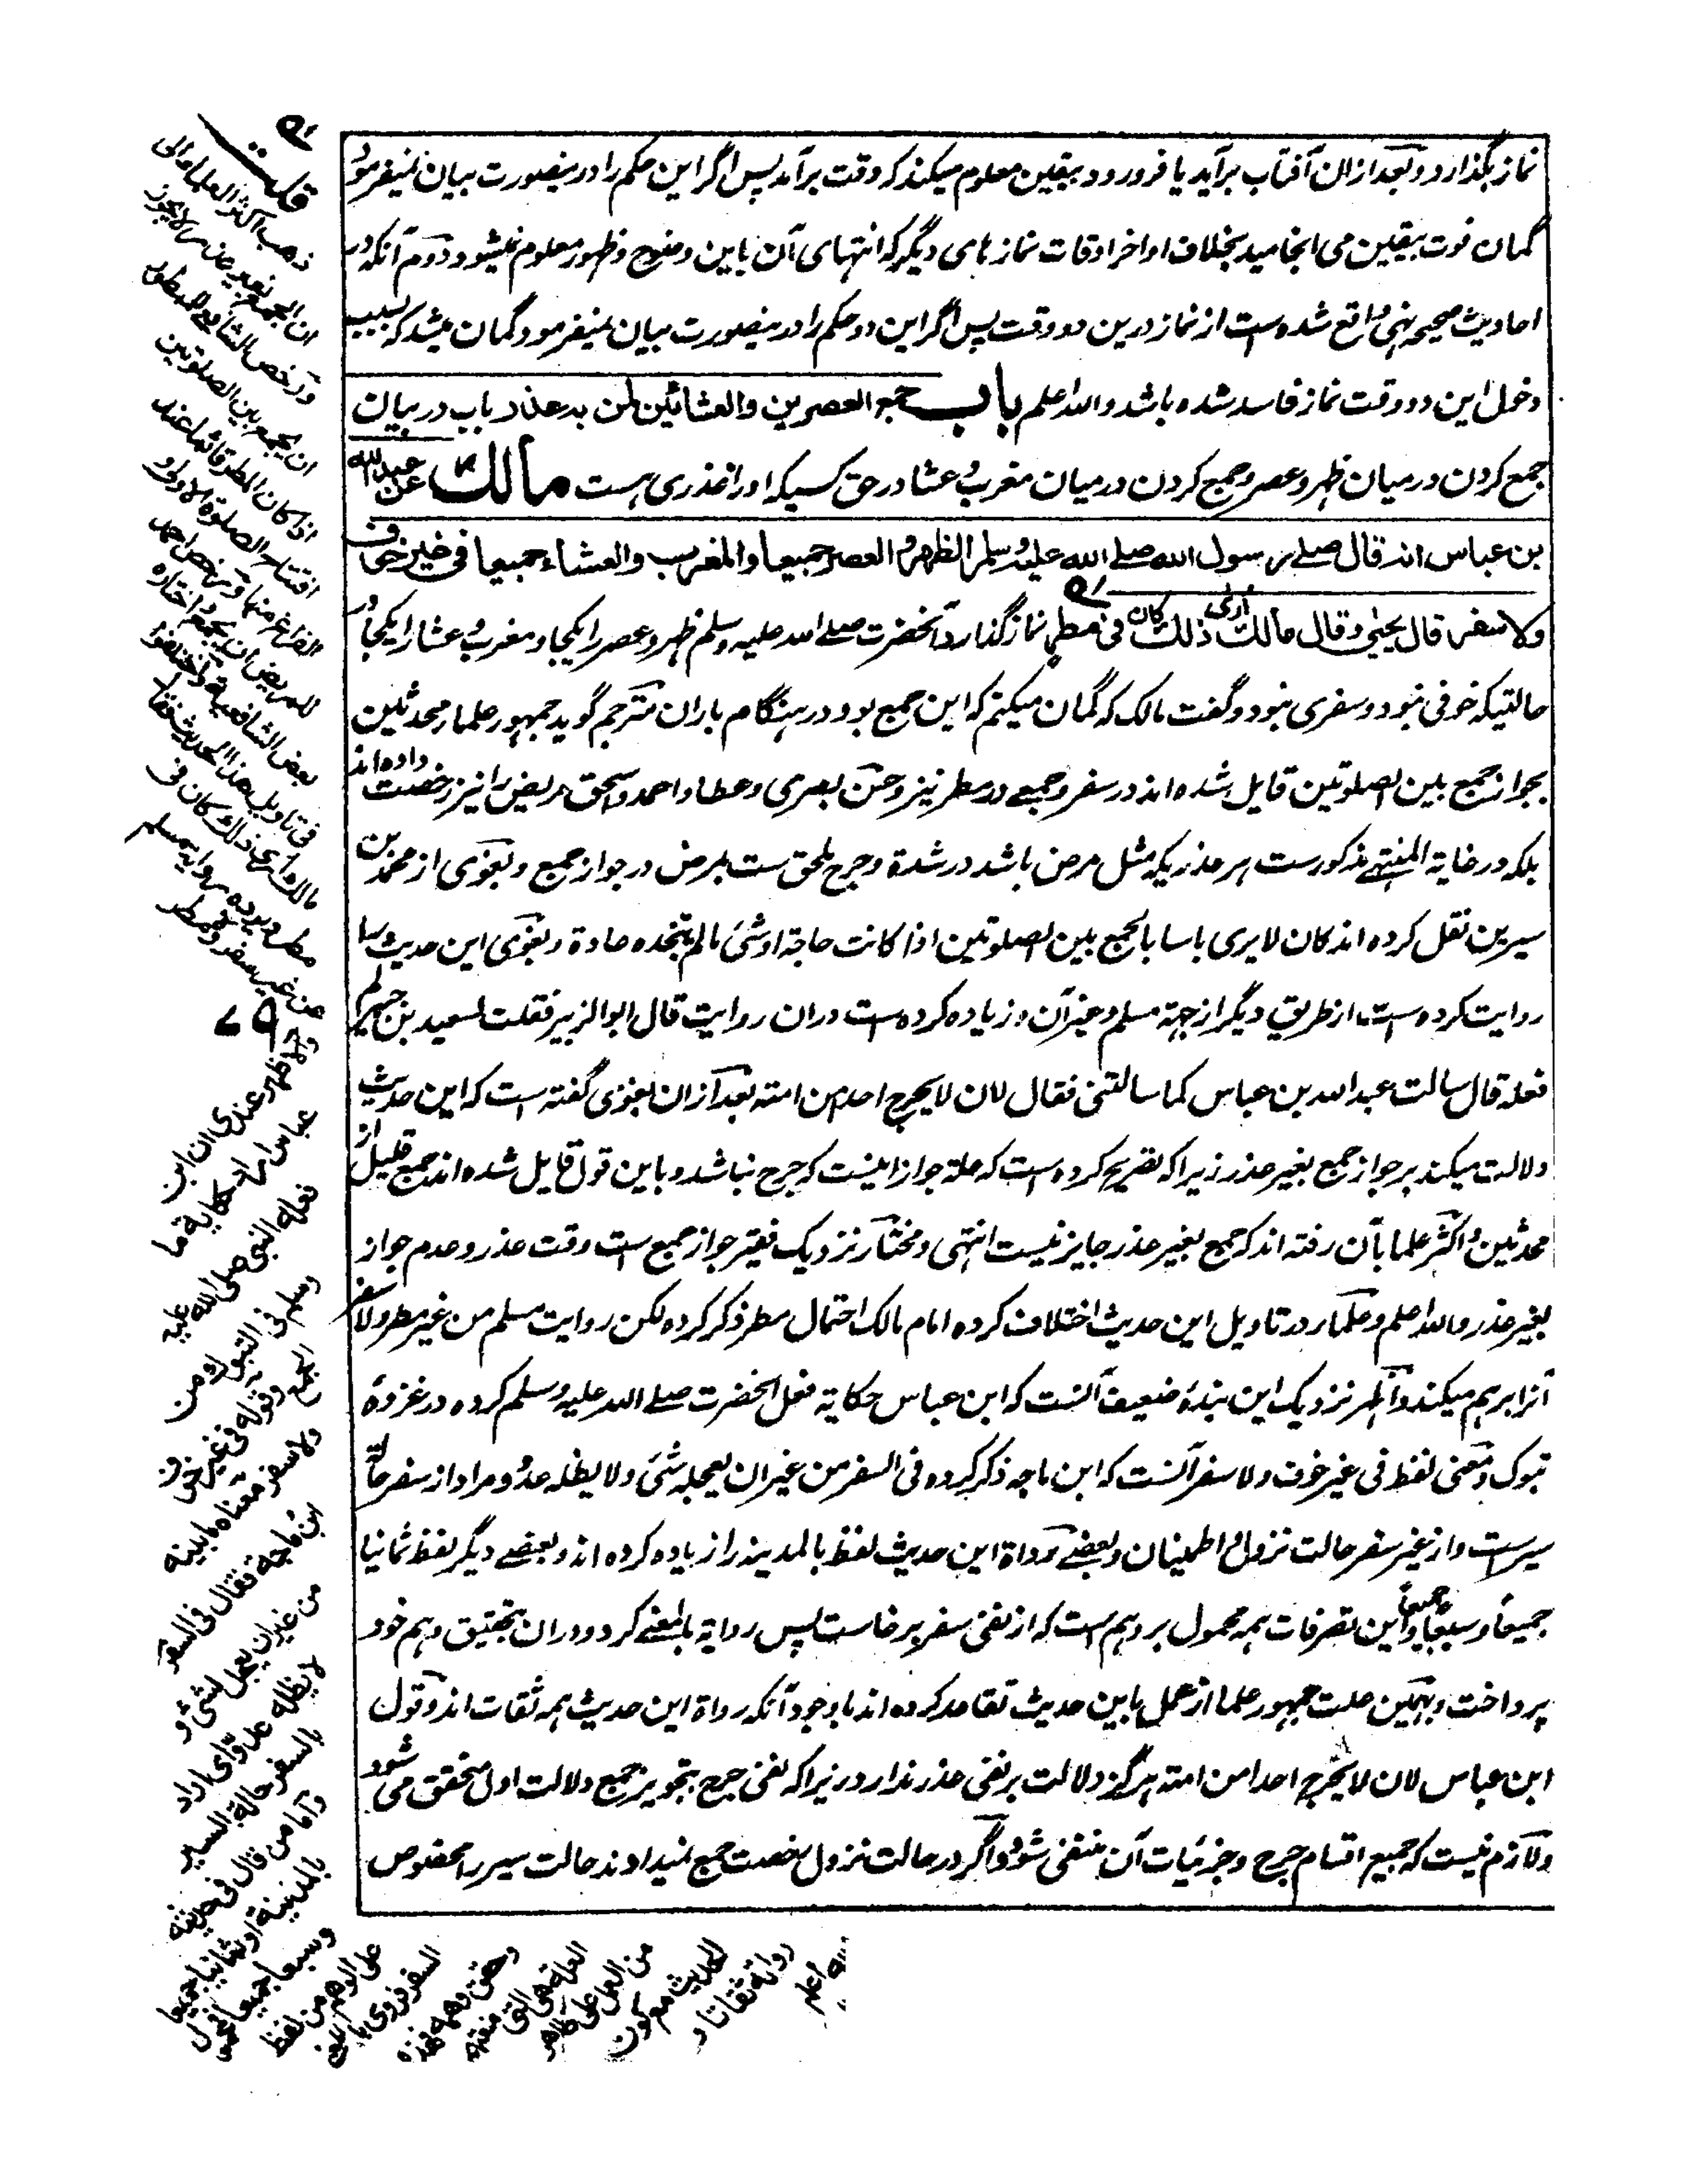 نماز بگذارد و بعد ازان آفتاب برآید یا فرو رود بیقین معلوم میکند که وقت برآمد پس اگر این حکم را درینصورت بیان نمیفرمود
گمان فوت بیقین می انجامید بخلاف اواخر اوقات نماز های دیگر که انتهای آن باین وضوح و ظهور معلوم نمیشود و دوم آنکه در
احادیث صحیحه نهی واقع شده است از نماز درین دو وقت پس اگر این دو حکم را درینصورت بیان نمیفرمود گمان میشد که بسبب
دخول این دو وقت نماز فاسد شده باشد والله اعلم باب جمع العصرین والعشائین لمن به عذر باب در بیان
جمع کردن درمیان ظهر و عصر و جمع کردن درمیان مغرب و عشا در حق کسیکه او را عذری هست مالك عن عبدالله
بن عباس انه قال صلے رسول الله صلے الله علیه وسلم الظهر والعصر جمیعا والمغرب والعشاء جمیعا فی غیر خوف
ولا سفر قال یحیٰی وقال مالك اُرٰی ذلك کان فی مطر نماز گذارد آنحضرت صلے الله علیه وسلم ظهر و عصر را یکجا و مغرب و عشا را یکجا در
حالتیکه خوفی نبود و سفری نبود و گفت مالک که گمان میکنم که این جمع بود در هنگام باران مترجم گوید جمهور علماء محدثین
بجواز جمع بین الصلوتین قایل شده اند در سفر و جمعے در مطر نیز و حسن بصری و عطا و احمد و اسحق مریض را نیز رخصت داده اند
بلکه در غایة المنتهے مذکورست هر عذریکه مثل مرض باشد در شدة و حرج ملحق ست بمرض در جواز جمع و بغوی از محمد بن
سیرین نقل کرده انه کان لا یری باسا بالجمع بین الصلوتین اذا کانت حاجة او شئ ما لم یتخذه عادة و بغوی این حدیث را
روایت کرده است از طریق دیگر از جهة مسلم و غیر آن و زیاده کرده است دران روایت قال ابو الزبیر فقلت لسعید بن جبیر لم
فعله قال سالت عبدالله بن عباس کما سالتنی فقال لان لا یحرج احد من امته بعد ازان بغوی گفته است که این حدیث
دلالت میکند بر جواز جمع بغیر عذر زیرا که تصریح کرده است که علة جواز اینست که حرج نباشد و باین قول قایل شده اند جمع قلیل از
محدثین و اکثر علما بآن رفته اند که جمع بغیر عذر جایز نیست انتهی و مختار نزدیک فقیر جواز جمع ست وقت عذر و عدم جواز
بغیر عذر والله اعلم و علماء در تاویل این حدیث اختلاف کرده امام مالک احتمال مطر ذکر کرده لکن روایت مسلم من غیر مطر ولا سفر
آنرا برهم میکند و اظهر نزدیک این بندۀ ضعیف آنست که ابن عباس حکایة فعل آنحضرت صلے الله علیه وسلم کرده در غزوۀ
تبوک و معنی لفظ فی غیر خوف ولا سفر آنست که ابن ماجه ذکر کرده فی السفر من غیر ان یعجله شئ ولا یطلبه عدو و مراد از سفر حالت
سیرست و از غیر سفر حالت نزول و اطمینان و بعضے رواة این حدیث لفظ بالمدینه را زیاده کرده اند و بعضے دیگر لفظ ثمانیا
جمیعاً و سبعاً جمیعاً و این تصرفات همه محمول بر وهم است که از نفی سفر برخاست پس روایة بالمعنے کرد و دران بتحقیق وهم خود
پرداخت و بهمین علت جمهور علما از عمل باین حدیث تقاعد کرده اند با وجود آنکه رواة این حدیث همه ثقات اند و قول
ابن عباس لان لا یحرج احدا من امته هرگز دلالت بر نفی عذر ندارد زیرا که نفی حرج بتجویز جمع دلالت اول متحقق می شود
و لازم نیست که جمیع اقسام حرج و جزئیات آن منتفی شود و اگر در حالت نزول رخصت جمع نمیدادند حالت سیر را مخصوص
قلت
ذهب اکثر العلماء الی
ان الجمع بغیر عذر لا یجوز
ورخص الشافعی للمطر
ان یجمع بین الصلوتین
اذا کان المطر قائما عند
افتتاح الصلوة الاولی و
الفراغ منها ورخص احمد
للمریض ان یجمع واختاره
بعض الشافعیة واختلفوا
فی تاویل هذا الحدیث فقال
مالك اری ذلك کان فی
مطر ویرده روایة مسلم
من غیر سفر ومطر
والاظهر عندی ان ابن
عباس اراد حکایة ما
فعله النبی صلی الله علیه
وسلم فی التبوك من
الجمع وقوله فی غیر خوف
ولا سفر معناه ما بینه
ابن ماجة فقال فی السفر
من غیر ان یعجل لشئ و
لا یطلبه عدو ای اراد
بالسفر حالة السیر
واما من قال فی حدیثه
بالمدینة او ثمانیا جمیعا
وسبعا جمیعا
علی الوهم من لفظ
السفر فروی بالمعنی
وحقق وهمه فهذه
العلة هی التی منعت
من العمل علی ظاهر
الحدیث مع کون
رواته ثقاتا و
الله اعلم